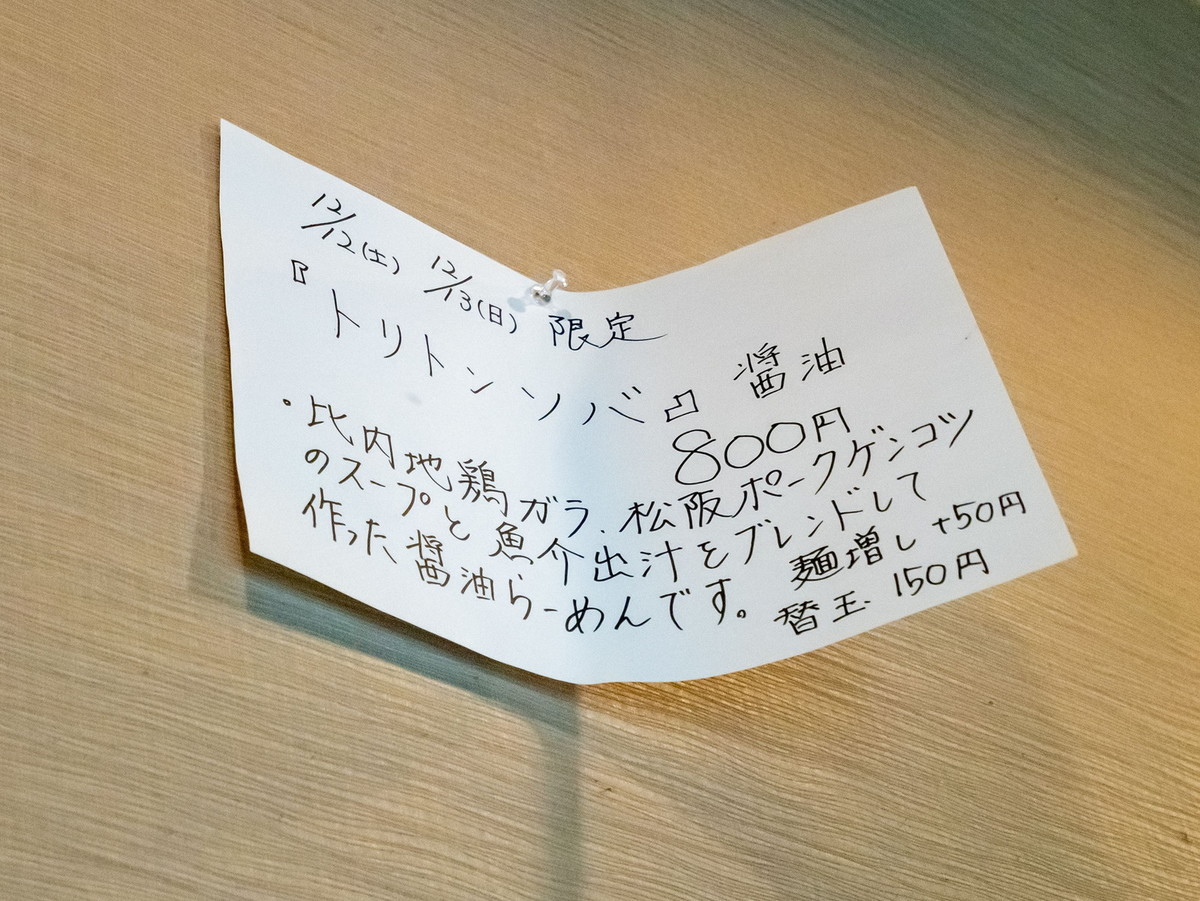 12/12(土) 12/13(日) 限定
『トリトンソバ』醤油
800円
・比内地鶏ガラ、松阪ポークゲンコツ
のスープと魚介出汁をブレンドして
作った醤油らーめんです。
麺増し+50円
替玉、150円